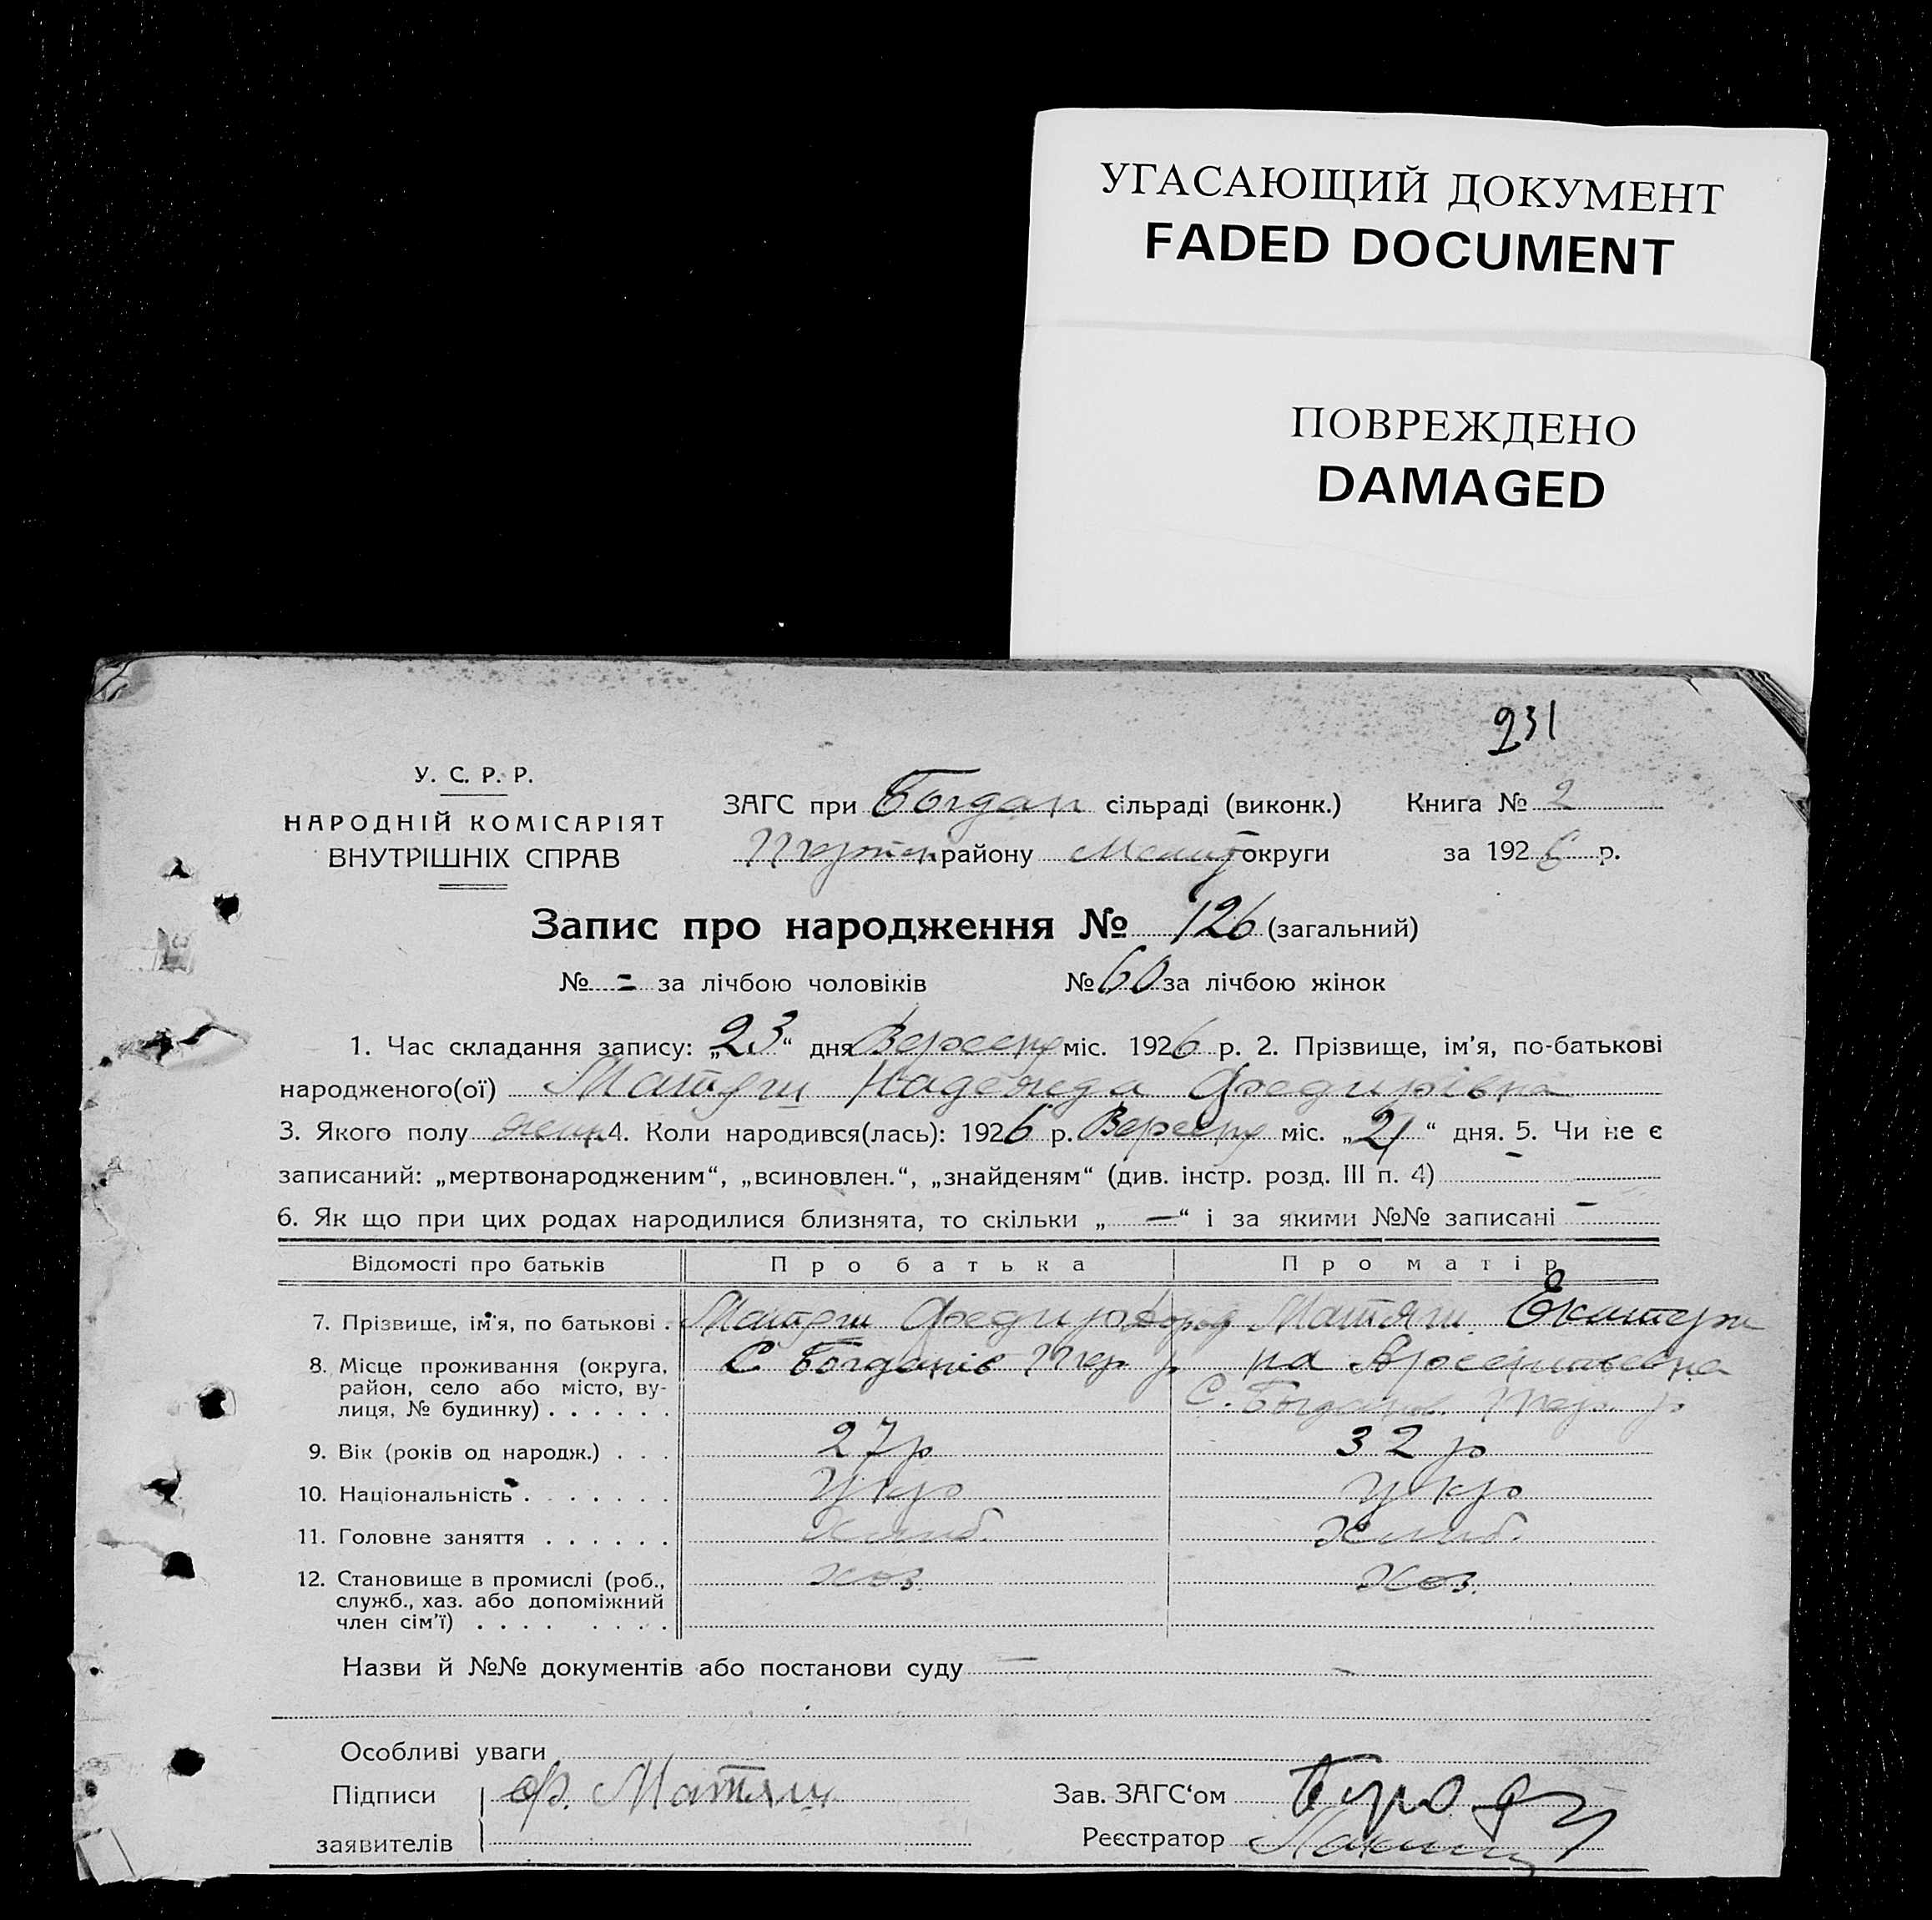 УГАСАЮЩИЙ ДОКУМЕНТ
FADED DOCUMENT
ПОВРЕЖДЕНО
DAMAGED
231
У. С. Р. Р.
НАРОДНІЙ КОМІСАРІЯТ
ВНУТРІШНІХ СПРАВ
ЗАГС при Богдан сільраді (виконк.) Книга № 2
району Меліт округи за 1926 р.
Запис про народження № 126 (загальний)
№ - за лічбою чоловіків № 60 за лічбою жінок
1. Час складання запису: „23“ дня Вересня міс. 1926 р. 2. Прізвище, ім'я, по-батькові
народженого(ої) Матяш Надежда Федирівна
3. Якого полу жін. 4. Коли народився(лась): 1926 р. Вересня міс. „21“ дня. 5. Чи не є
записаний: „мертвонародженим“, „всиновлен.“, „знайденям“ (див. інстр. розд. III п. 4) -
6. Як що при цих родах народилися близнята, то скільки „—“ і за якими №№ записані —
Відомості про батьків Про батька Про матір
7. Прізвище, ім'я, по батькові . Матяш Федир Матяш Екатери
8. Місце проживання (округа, С Богданів р на
район, село або місто, ву- С. Богданів. р
лиця, № будинку) . . . . . .
9. Вік (років од народж.) . . . 27 р 32 р
10. Національність . . . . . . . Укр укр
11. Головне заняття . . . . . . Хліб. Хліб.
12. Становище в промислі (роб., хоз Хоз.
служб., хаз. або допоміжний
член сім'ї) . . . . . . . .
Назви й №№ документів або постанови суду —
Особливі уваги
Підписи Ф. Матяш Зав. ЗАГС'ом
заявителів Реєстратор